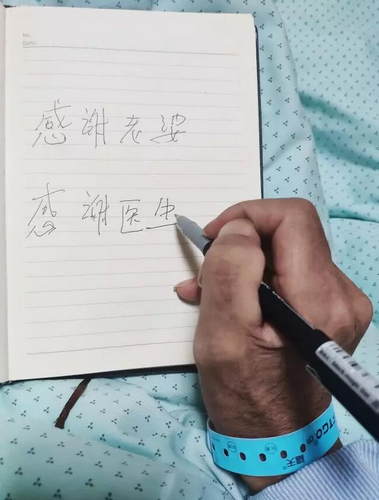 感谢老婆
感谢医生